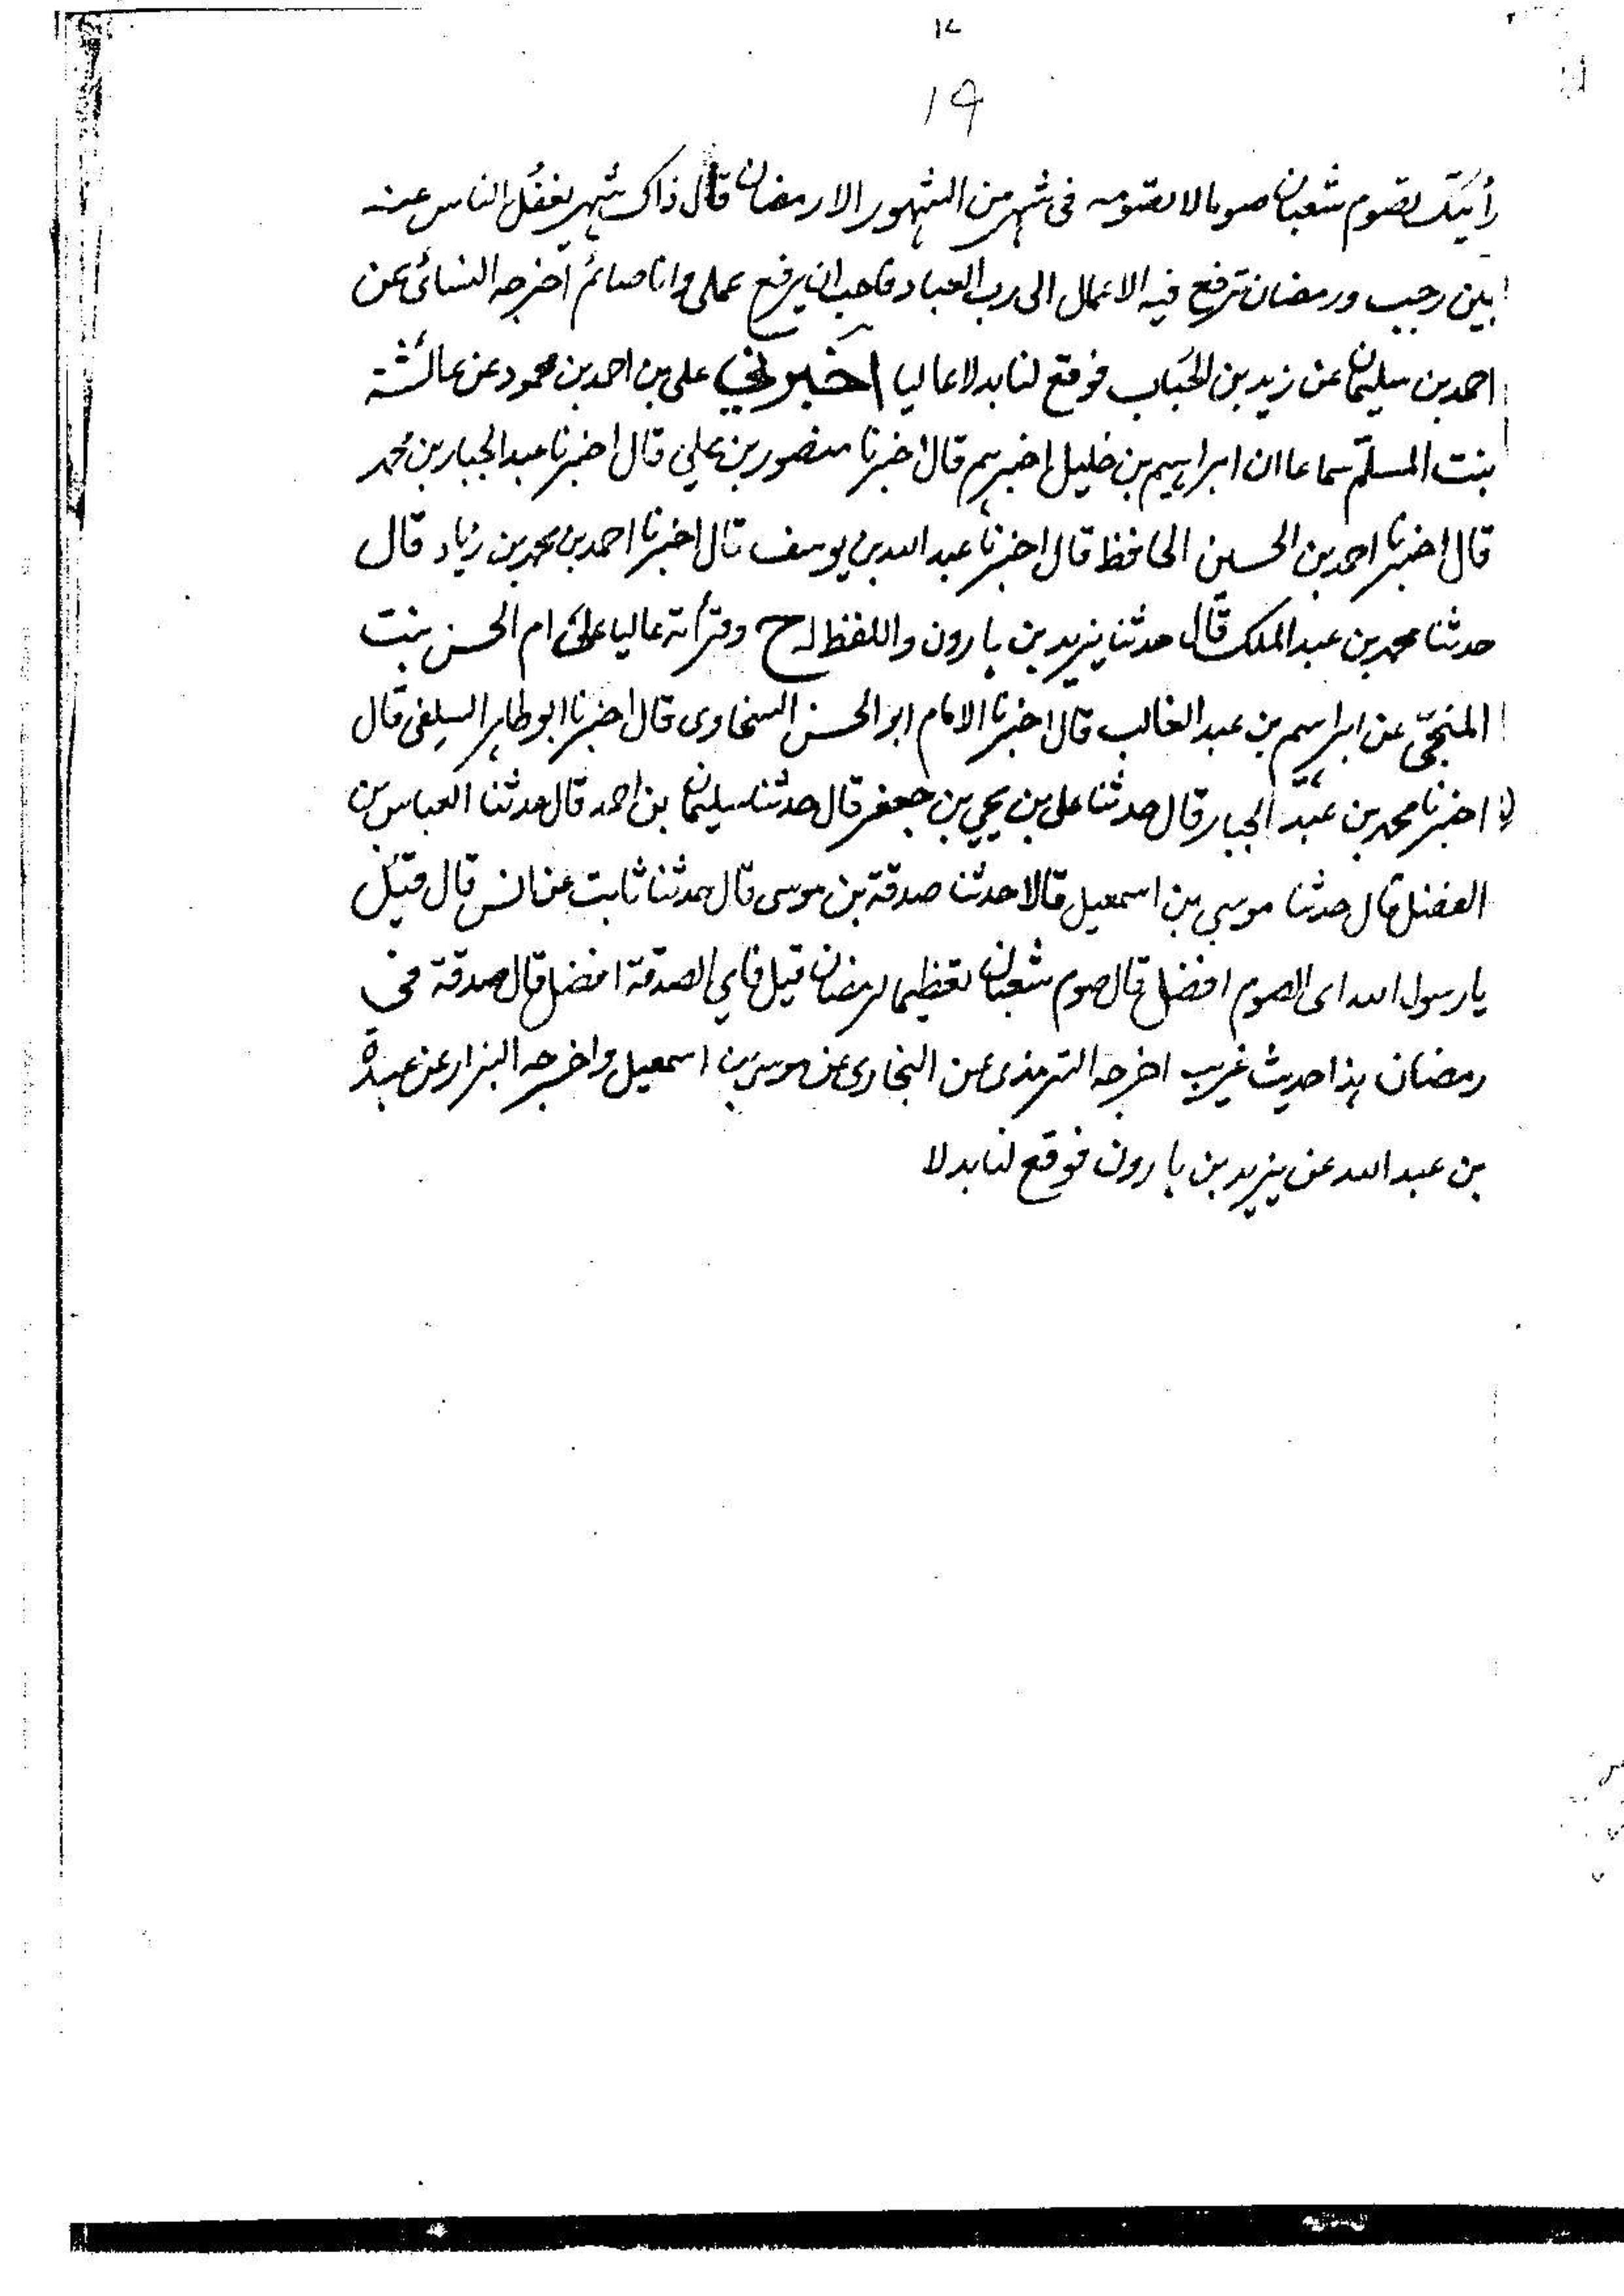 ١٤
١٩
رأيتك تصوم شعبان صوما لا تصومه فى شهر من الشهور الا رمضان قال ذاك شهر يغفل الناس عنه
بين رجب ورمضان ترفع فيه الاعمال الى رب العباد فاحب ان يرفع عملى وانا صائم اخرجه النسائى عن
احمد بن سليمان عن زيد بن الحُبَاب فوقع لنا بدلا عاليا اخبرني على بن احمد بن محمود عن عائشة
بنت المسلّم سماعا ان ابراهيم بن خليل اخبرهم قال اخبرنا منصور بن علي قال اخبرنا عبد الجبار بن محمد
قال اخبرنا احمد بن الحسين الحافظ قال اخبرنا عبد الله بن يوسف قال اخبرنا احمد بن محمد بن زياد قال
حدثنا محمد بن عبد الملك قال حدثنا يزيد بن هارون واللفظ له ح وقرأته عاليا على ام الحسن بنت
المنجّى عن ابراهيم بن عبد الغالب قال اخبرنا الامام ابو الحسن السخاوى قال اخبرنا ابو طاهر السلفى قال
اخبرنا محمد بن عبد الجبار قال حدثنا على بن يحيي بن جعفر قال حدثنا سليمان بن احمد قال حدثنا العباس بن
الفضل قال حدثنا موسي بن اسمعيل قالا حدثنا صدقة بن موسى قال حدثنا ثابت عن انس قال قيل
يا رسول الله اى الصوم افضل قال صوم شعبان تعظيما لرمضان قيل فاي الصدقة افضل قال صدقة في
رمضان هذا حديث غريب اخرجه الترمذى عن البخارى عن موسى بن اسمعيل واخرجه البزار عن عبدة
بن عبد الله عن يزيد بن هارون فوقع لنا بدلا